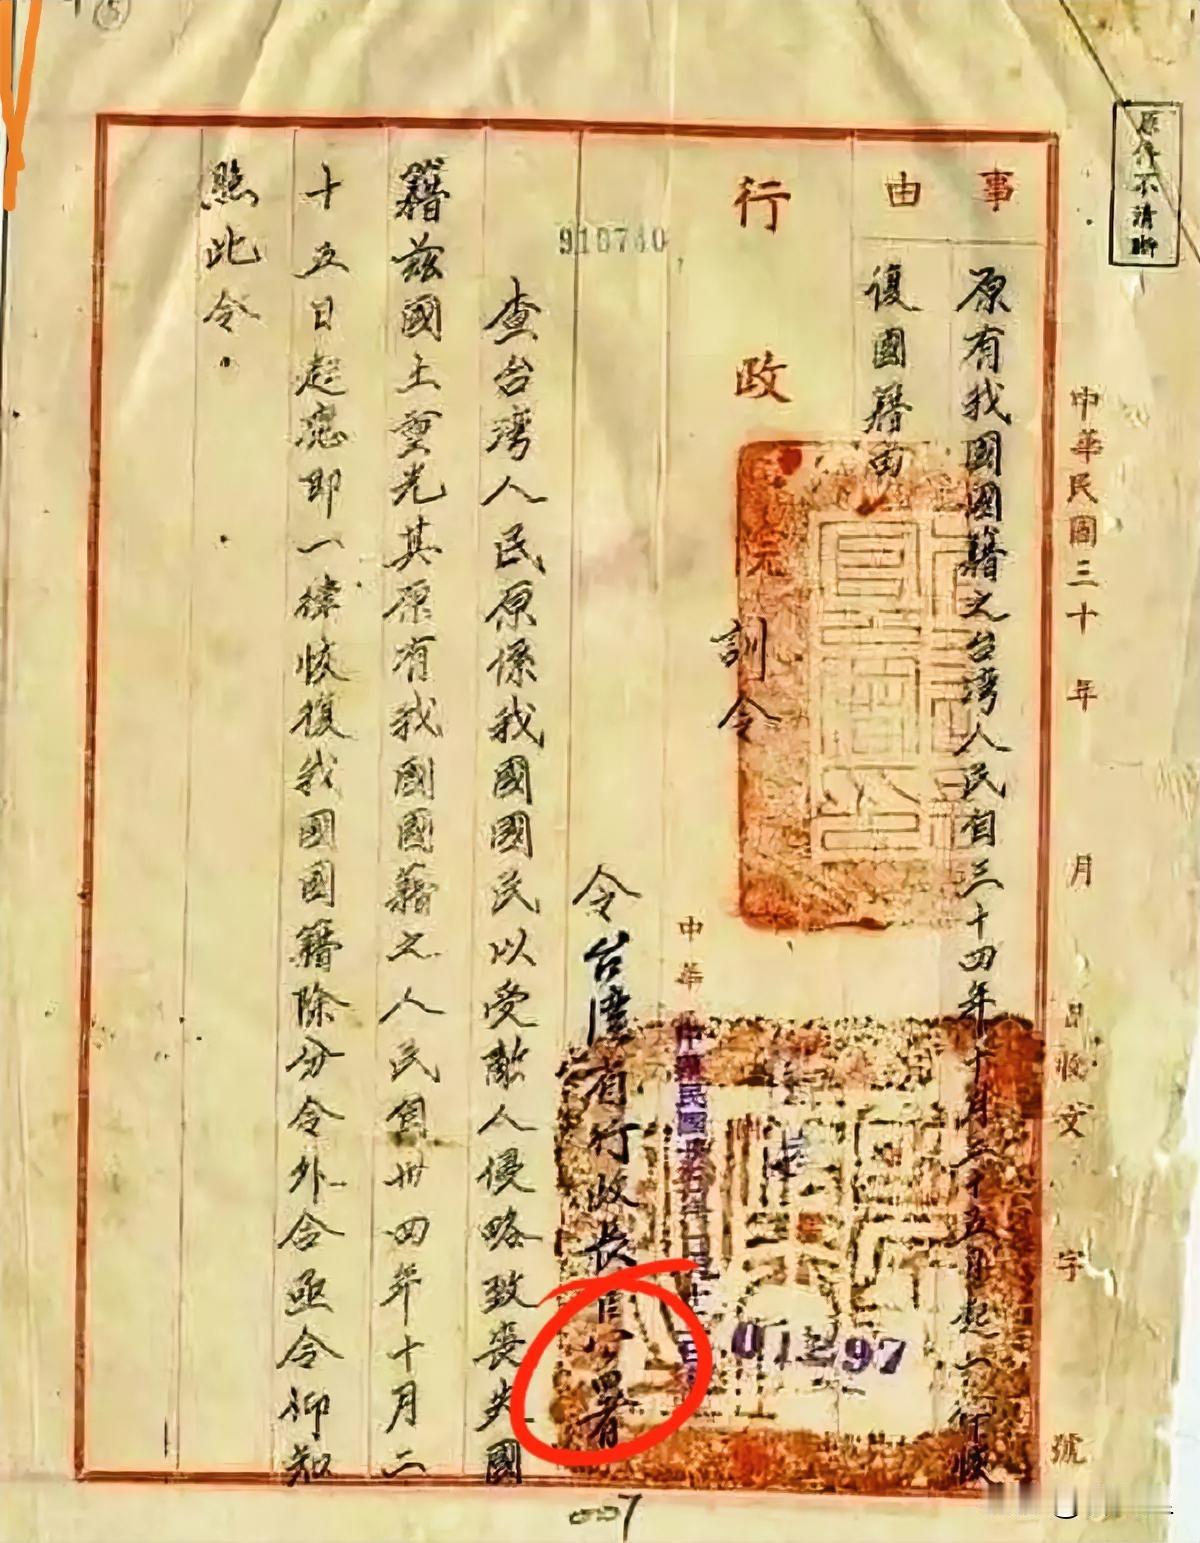 原件不清晰
中華民國三十 年 月 日收文 字 號
事由
原有我國國籍之台灣人民自三十四年十月二十五日起一
復國籍由
行政
訓令
01297
中華
中華民國
令台灣省行政長官公署
910740
查台灣人民原係我國國民以受敵人侵略致喪失國
籍茲國土重光其原有我國國籍之人民自卅四年十月二
十五日起應即一律恢復我國國籍除分令外合亟令仰知
照此令.
007